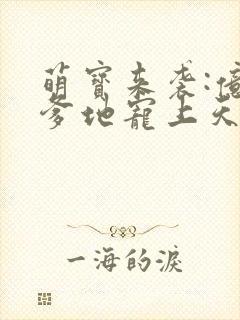 萌寶来袭:
爹地寵上天
一海的淚